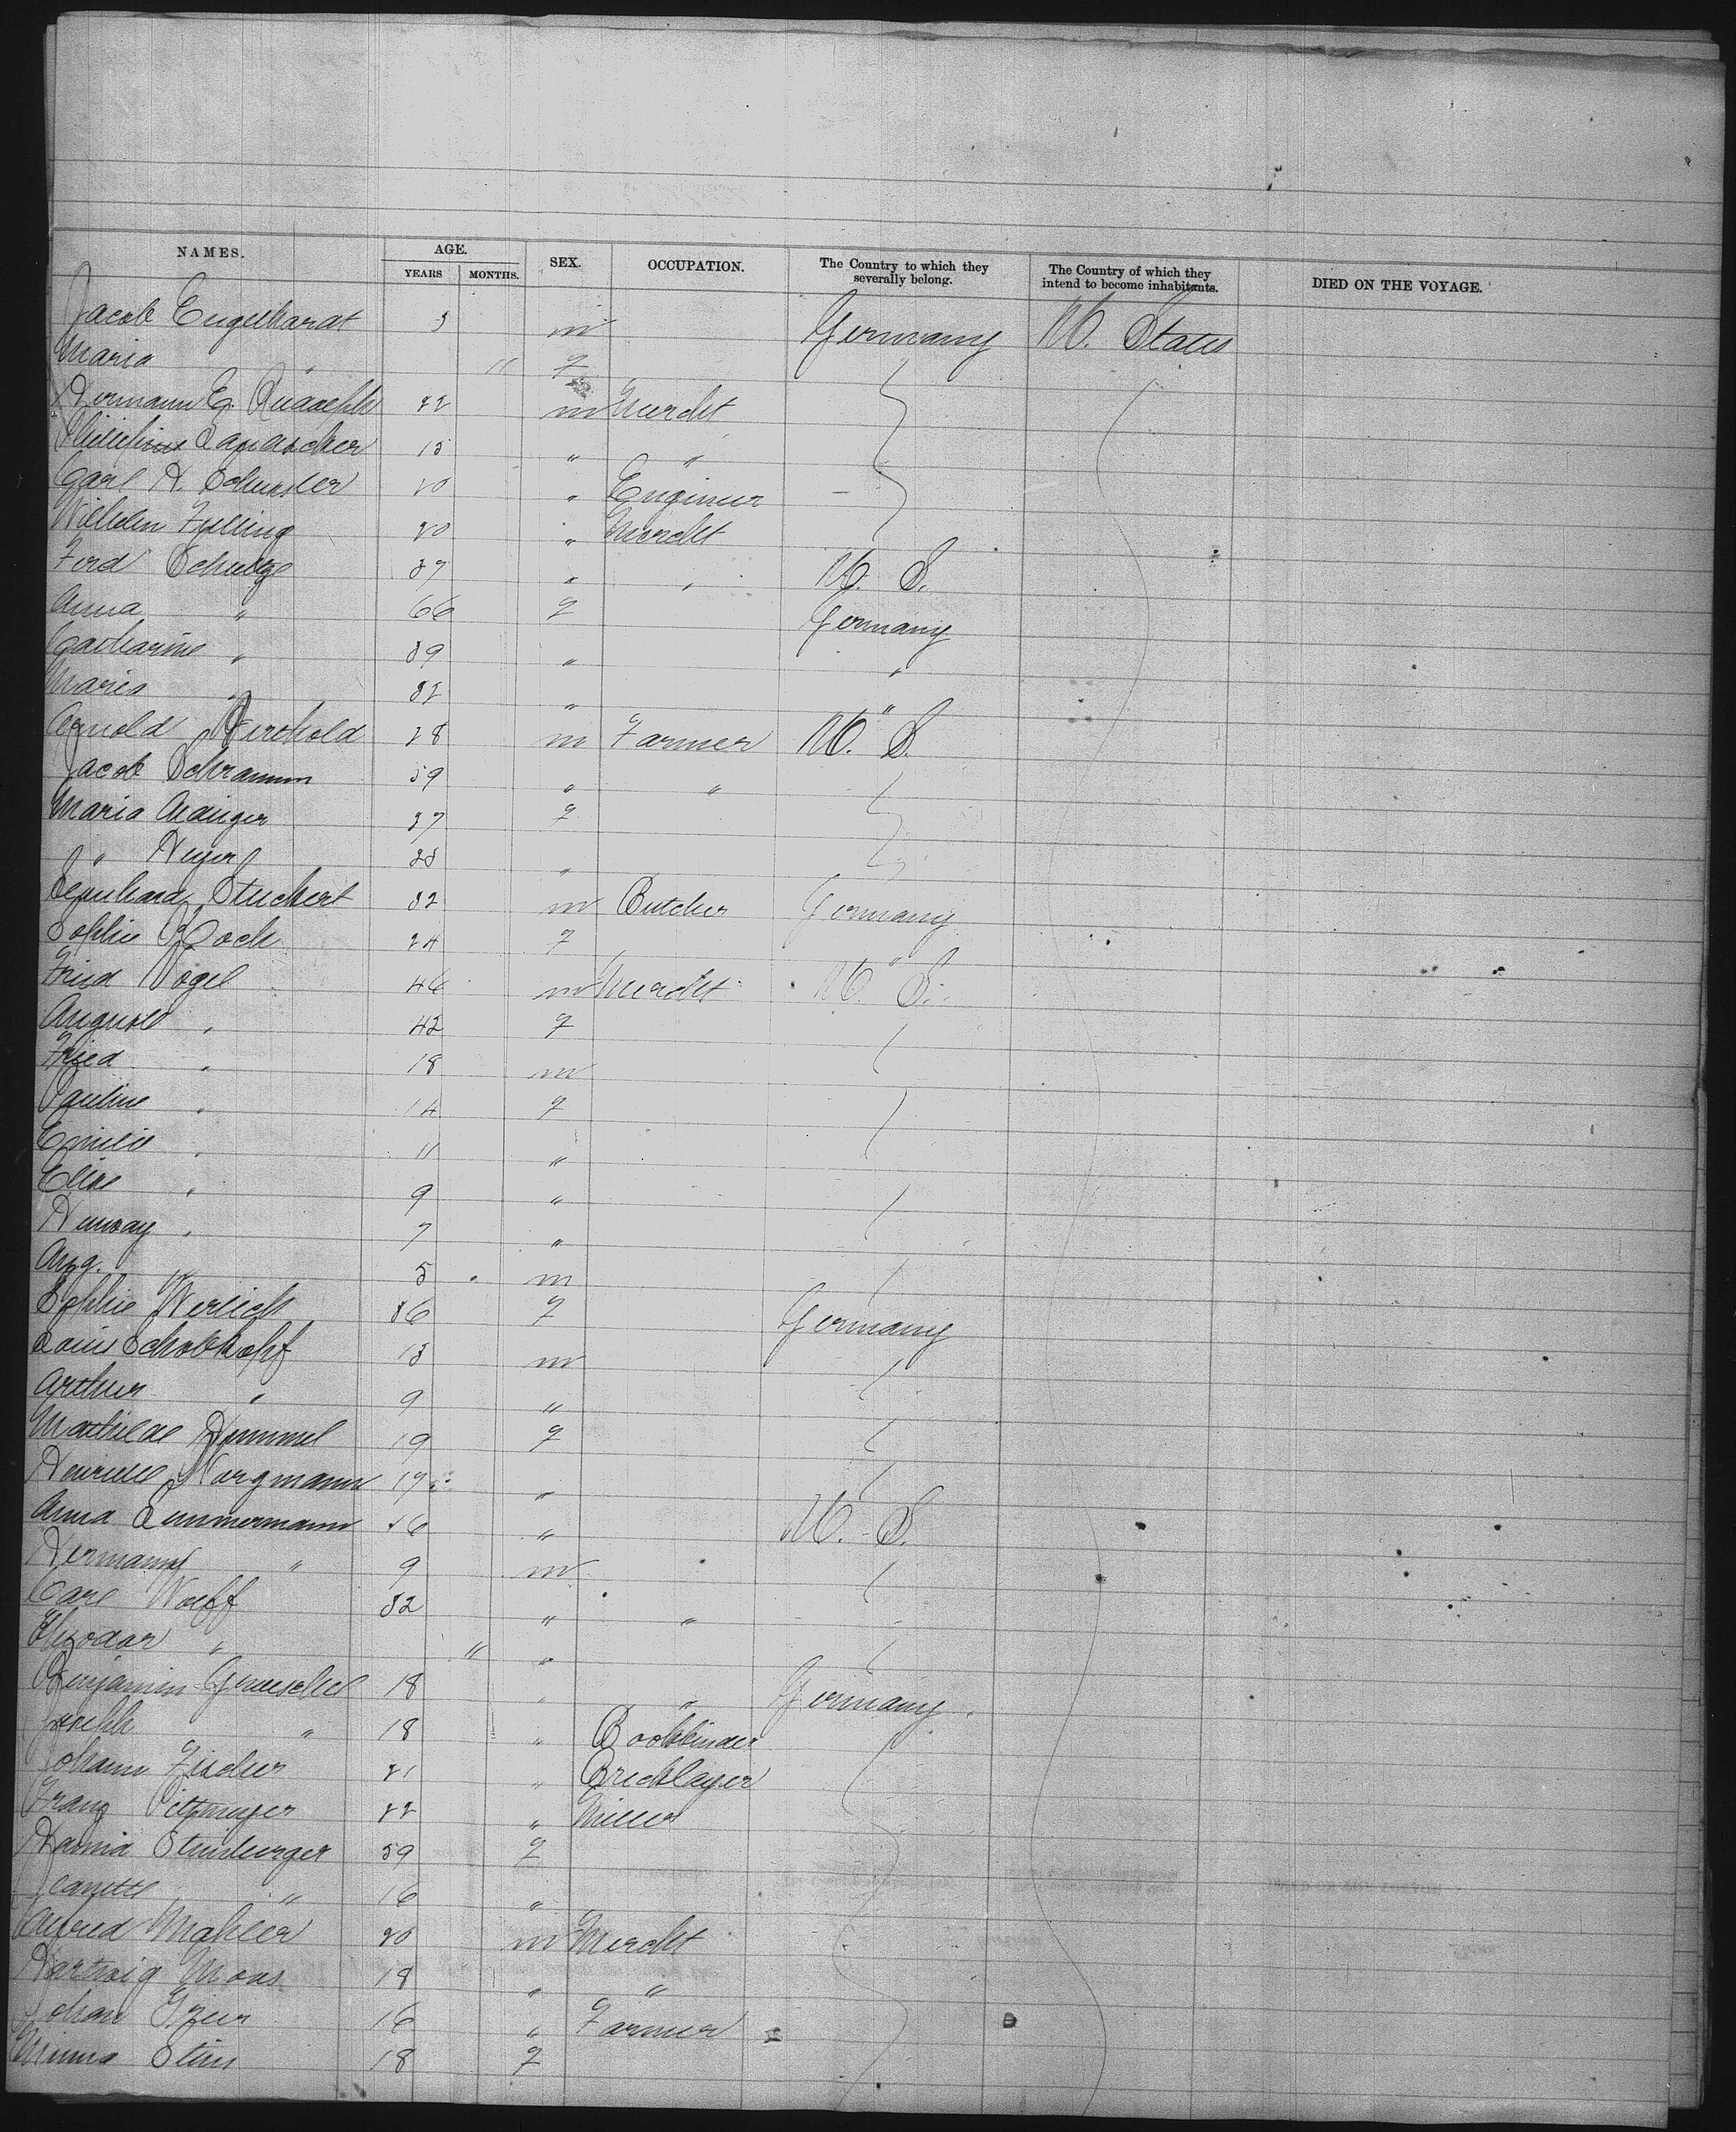 NAMES. AGE. YEARS MONTHS. SEX. OCCUPATION. The Country to which they severally belong. The Country of which they intend to become inhabitants. DIED ON THE VOYAGE.
Jacob Engelhardt 3 m Germany U. States
Maria " 11 f
Hermann E. 22 m Mercht
15 " "
Carl H. Schussler 20 " Engineer
Wilhelm 20 " Mercht
Ferd Schulze 37 " " U. S.
Anna " 66 f Germany
Catharine " 39 " "
Maria " 32 " "
Arnold 28 m Farmer U. S.
Jacob Schramm 59 " "
Maria 37 f
" Meyer 28 "
Stuckert 32 m Butcher Germany
Sophie Koch 24 f "
Fried Vogel 46 m Mercht U. S.
August " 42 f
Fried " 18 m
Pauline " 14 f
Emilie " 11 "
Elise " 9 "
" 7 "
Aug. " 5 m
Sophie 36 f Germany
Louis 13 m
Arthur " 9 "
Mathilde Hummel 19 f
19 "
Anna Zimmermann 36 " U. S.
Hermann " 9 m
Carl Wolff 32 " "
Theodor " 11 "
Benjamin 18 " " Germany
Joseph " 18 " Bookbinder
Johann Fischer 21 " Bricklayer
Franz 22 " Miller
59 f
Jeanette " 16 "
Alfred Mahler 20 m Mercht
Hartwig Mons 18 " "
Johan 16 " Farmer
Minna Stein 18 f